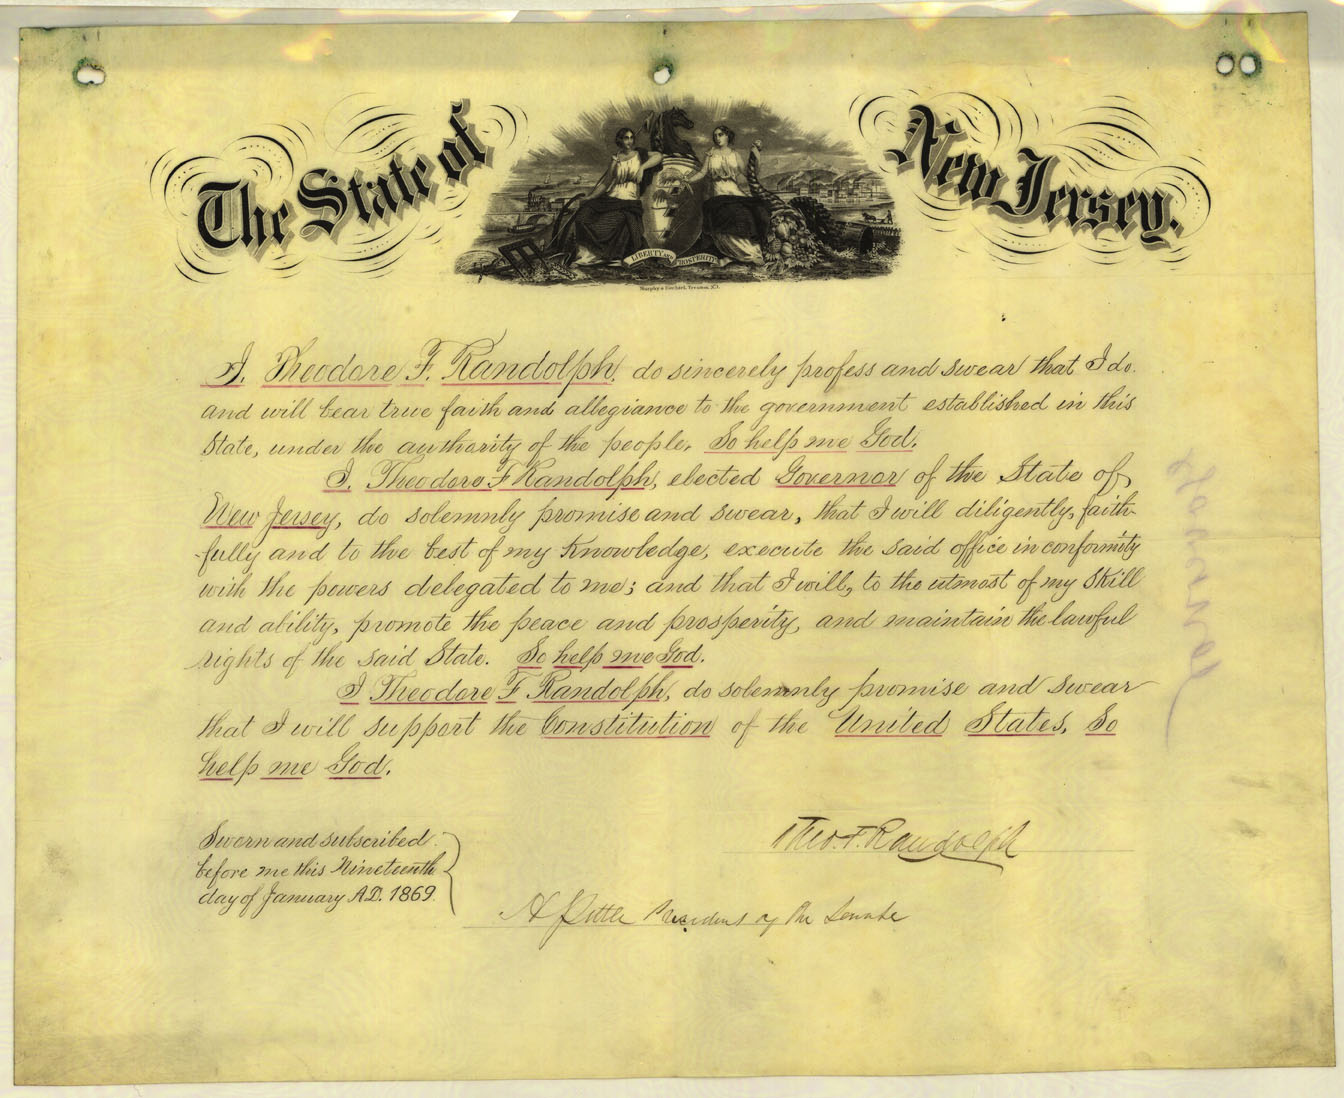 The State of New Jersey.
LIBERTY AND PROSPERITY
I, Theodore F. Randolph, do sincerely profess and swear that I do
and will bear true faith and allegiance to the government established in this
State, under the authority of the people. So help me God.
I, Theodore F Randolph, elected Governor of the State of
New Jersey, do solemnly promise and swear, that I will diligently, faith-
fully and to the best of my knowledge, execute the said office in conformity
with the powers delegated to me; and that I will, to the utmost of my skill
and ability, promote the peace and prosperity, and maintain the lawful
rights of the said State. So help me God.
I Theodore F Randolph, do solemnly promise and swear
that I will support the Constitution of the United States. So
help me God.
Theo. F. Randolph
Sworn and subscribed
before me this Nineteenth
day of January A.D. 1869.
President of the Senate